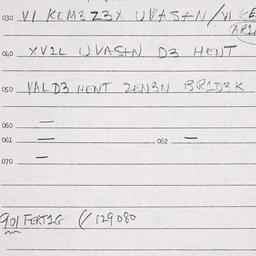 030 VI KEM3Z3X UVASAN / VI KE
040 XV1L UVASAN D3 HENT
050 VALD3 HENT ZEN3N BR1D3K
060 —
061 — 062 —
070 —
901 FERT1G (/ 129080